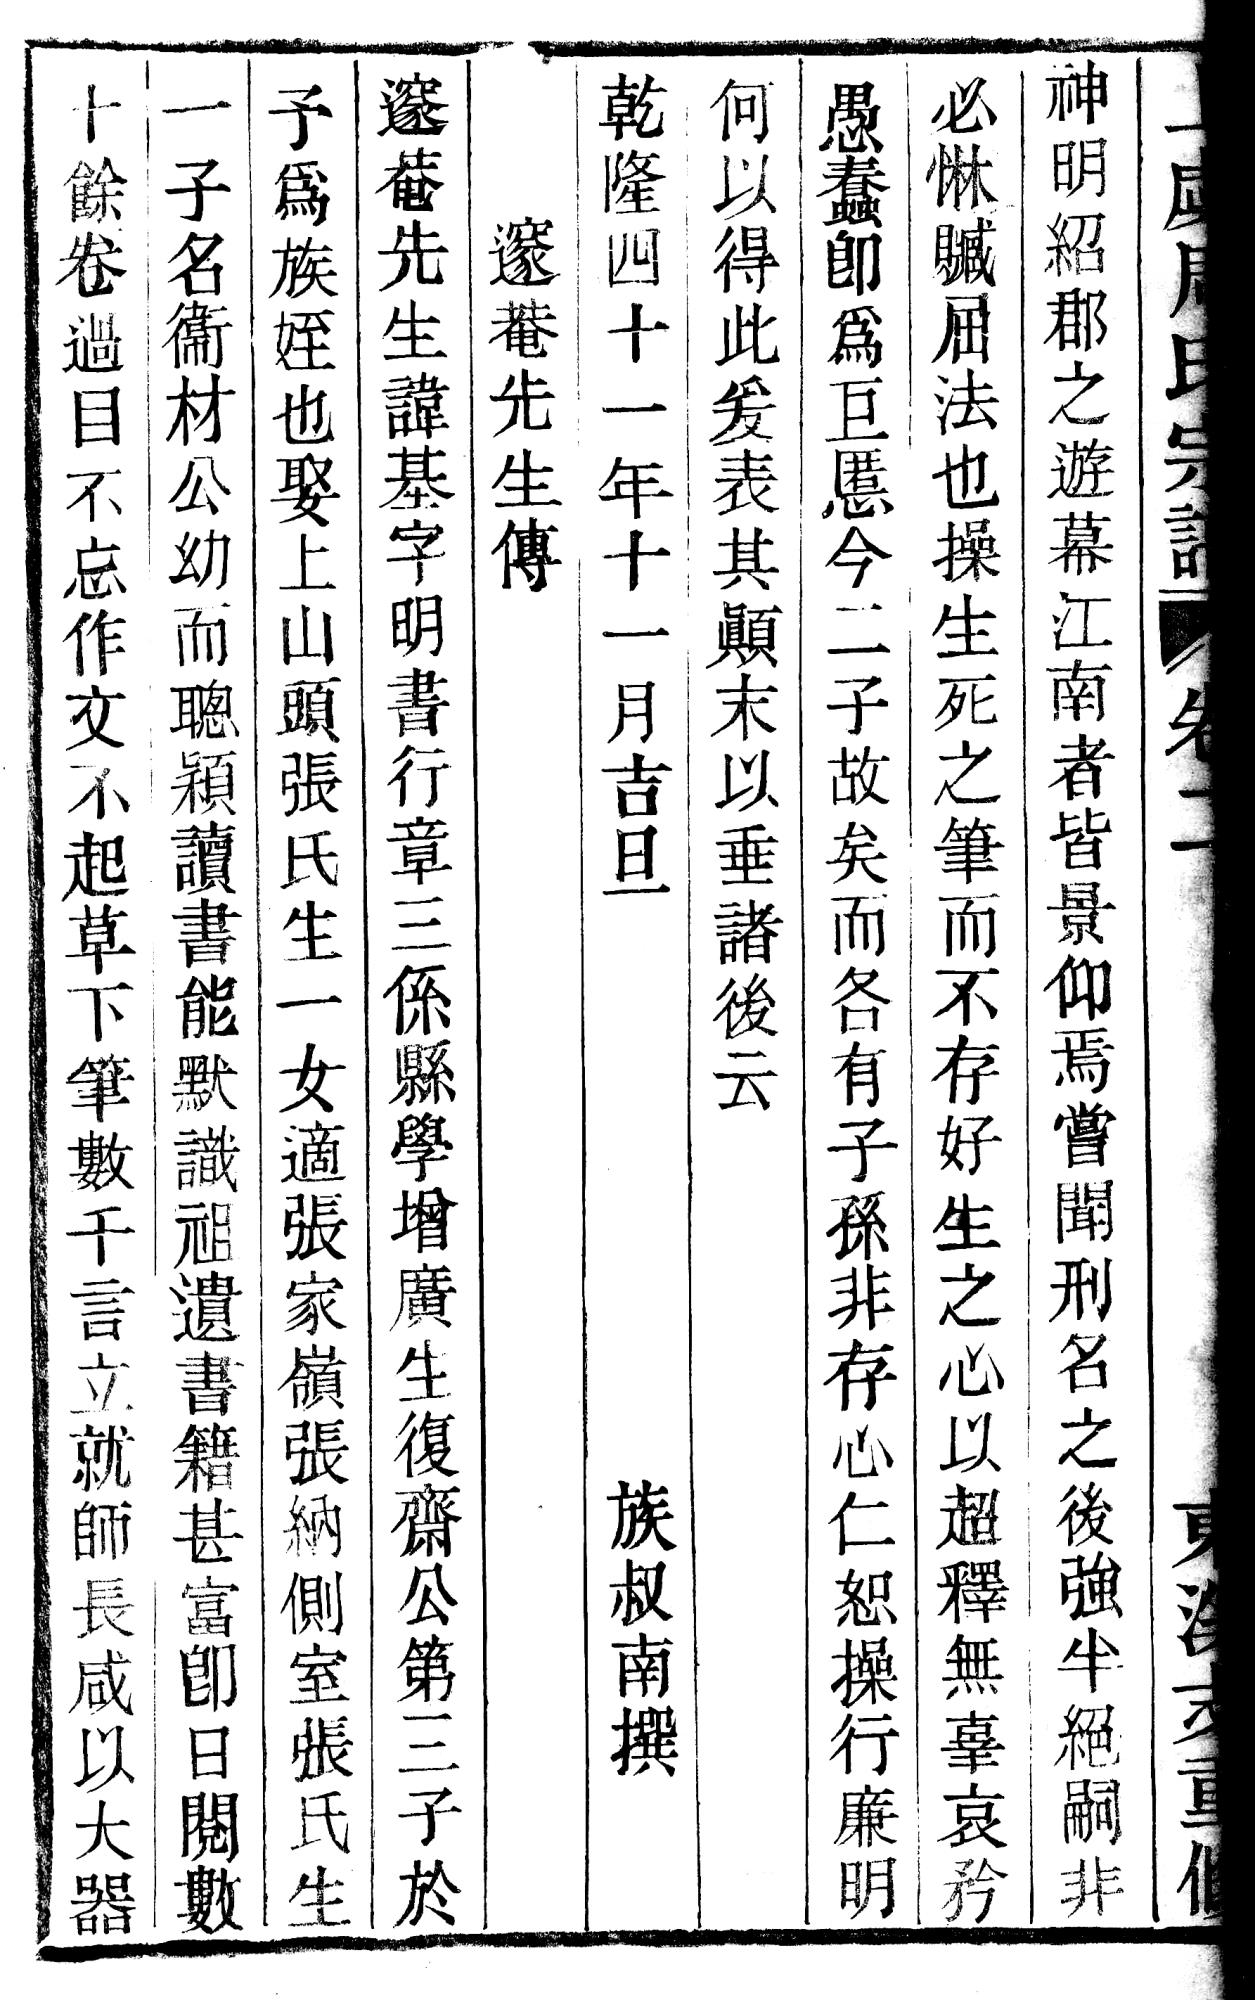 氏宗譜 卷二
神明紹郡之遊幕江南者皆景仰焉嘗聞刑名之後強半絕嗣非
必惏贓屈法也操生死之筆而不存好生之心以超釋無辜哀矜
愚蠢卽爲巨慝今二子故矣而各有子孫非存心仁恕操行廉明
何以得此爰表其顚末以垂諸後云
乾隆四十一年十一月吉旦 族叔南撰
邃菴先生傳
邃菴先生諱基字明書行章三係縣學增廣生復齋公第三子於
予爲族姪也娶上山頭張氏生一女適張家嶺張納側室張氏生
一子名衞材公幼而聰穎讀書能默識祖遺書籍甚富卽日閱數
十餘卷過目不忘作文不起草下筆數千言立就師長咸以大器